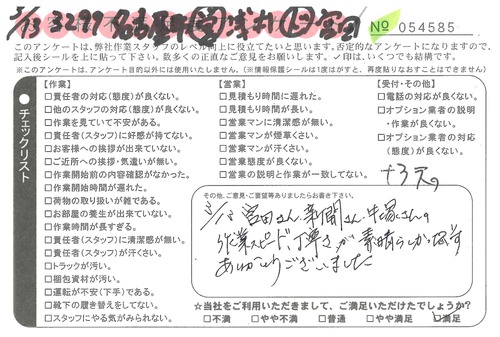 3/13 3297 名古屋 浅井 宮田
No 054585
このアンケートは、弊社作業スタッフのレベル向上に役立てたいと思います。否定的なアンケートになりますので、
記入後シールを上に貼って下さい。数多くの正直なご意見をお願いします。✓印は、いくつでも結構です。
※このアンケートは、アンケート目的以外には使用いたしません。(※情報保護シールは1度はがすと、再度貼りなおすことはできません)
チェックリスト
【作業】
□責任者の対応(態度)が良くない。
□他のスタッフの対応(態度)が良くない。
□作業を見ていて不安がある。
□責任者(スタッフ)に好感が持てない。
□お客様への挨拶が出来ていない。
□ご近所への挨拶・気遣いが無い。
□作業開始前の内容確認がなかった。
□作業開始時間が遅れた。
□荷物の取り扱いが雑である。
□お部屋の養生が出来ていない。
□作業時間が長すぎる。
□責任者(スタッフ)に清潔感が無い。
□責任者(スタッフ)が汗くさい。
□トラックが汚い。
□梱包資材が汚い。
□運転が不安(下手)である。
□靴下の履き替えをしてない。
□スタッフにやる気がみられない。
【営業】
□見積もり時間に遅れた。
□見積もり時間が長い。
□営業マンに清潔感が無い。
□営業マンが煙草くさい。
□営業マンが汗くさい。
□営業態度が良くない。
□営業の説明と作業が一致してない。
【受付・その他】
□電話の対応が良くない。
□オプション業者の説明
・作業が良くない。
□オプション業者の対応
(態度)が良くない。
+3点
その他、ご意見・ご要望等ありましたらお書き下さい。
3/13 宮田さん、新聞さん、牛場さんの
作業スピード、丁寧さが素晴らしかったです
ありがとうございました
☆当社をご利用いただきまして、ご満足いただけたでしょうか?
□不満 □やや不満 □普通 □やや満足 ☑満足